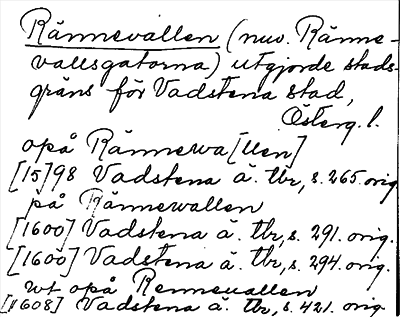 Rännevallen (nuv. Ränne-
vallsgatorna) utgjorde stads-
gräns för Vadstena stad,
Österg. l.
opå Rännewa[llen]
[15]98 Vadstena ä. tbr, s. 265. orig
på Rännewallen
[1600] Vadstena ä. tbr, s. 291. orig.
[1600] Vadstena ä. tbr, s. 294. orig.
wt opå Renneuallen
[1608] Vadstena ä. tbr, s. 421. orig.